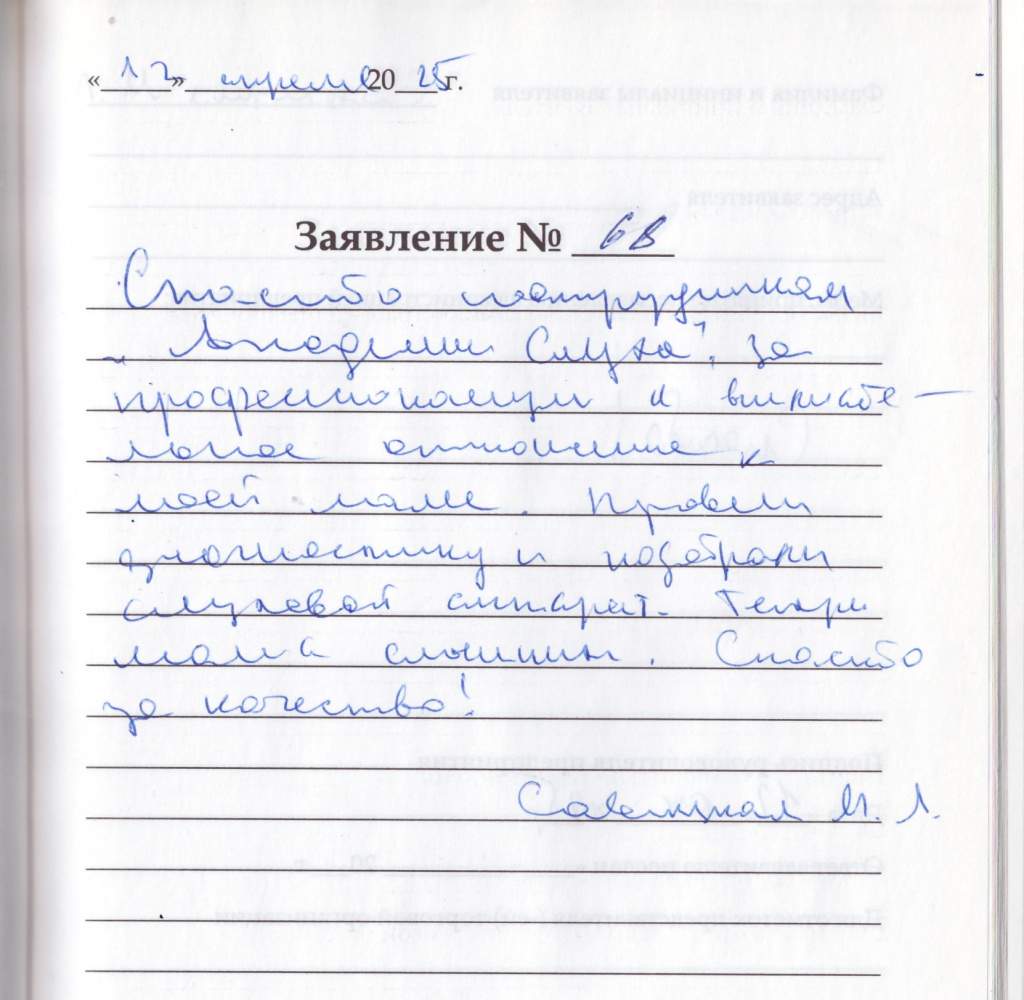 «17» апреля 2025 г.
Заявление № 68
Спасибо сотрудникам
"Академии Слуха", за
профессионализм и внимате-
льное отношение к
моей маме. Провели
диагностику и подобрали
слуховой аппарат. Теперь
мама слышит. Спасибо
за качество!
М. Л.